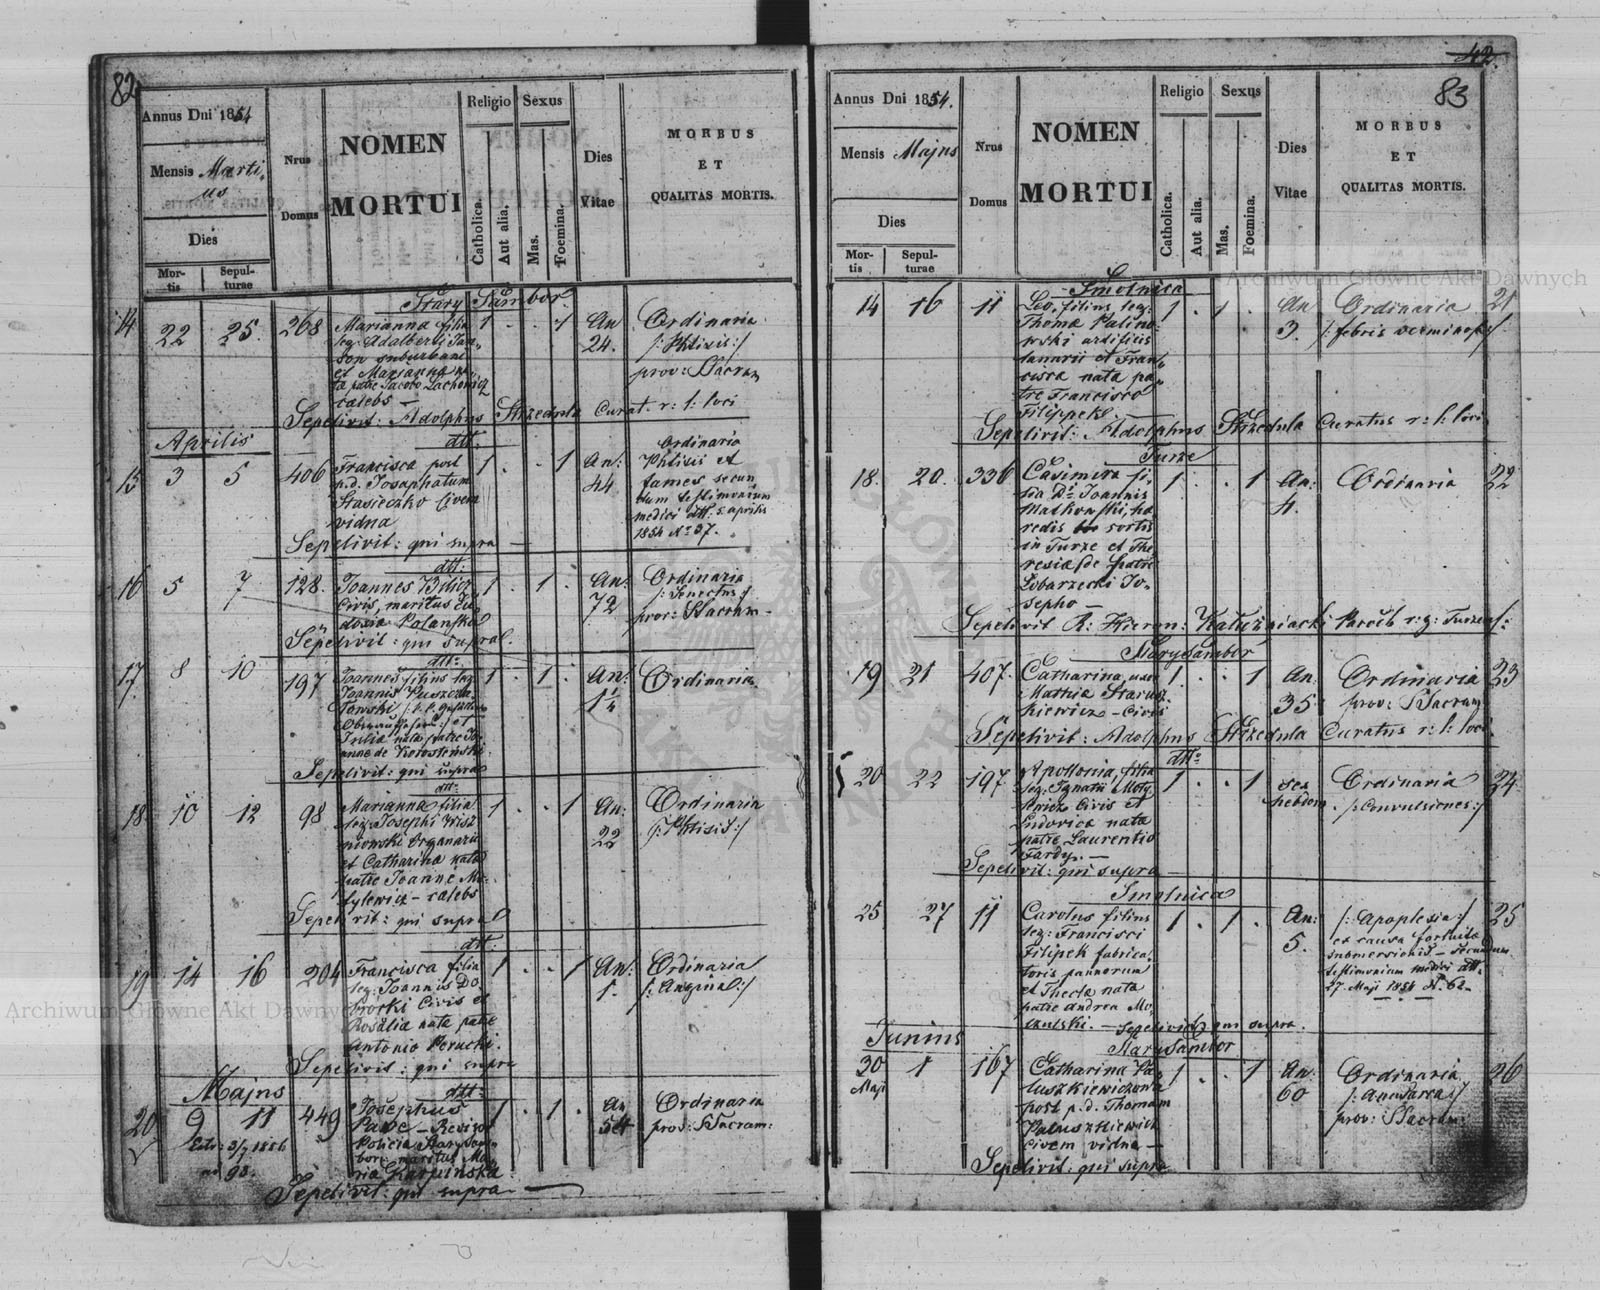 82
Annus Dni 1854
Mensis Marti-
us
Dies
Mor-
tis
Sepul-
turae
Nrus
Domus
NOMEN
MORTUI
Religio
Catholica.
Aut alia.
Sexus
Mas.
Foemina.
Dies
Vitae
MORBUS
ET
QUALITAS MORTIS.
Stary Sambor
14 22 25. 268 Marianna filia 1 . . 1 An 24. Ordinaria
leg: Adalberti
suburbani /: Phtisis :/
et Marianna na-
ta patre Jacobo Lachowicz prov: SSacram
caelebs —
Sepelivit: Adolphus Strzedula Curat. r: l: loci
Aprilis
dtt.
15 3 5 406 Francisca post 1 . . 1 An: 44 Ordinaria
p.d. Josaphatum Phtisis et
Stasieczko Civem fames secun
vidua dum testimonium
medici dtt. 5 aprilis
1854 No 37.
Sepelivit: qui supra —
dtt:
16 5 7 128. Joannes 1 . 1 . An: 72 Ordinaria
Civis, maritus Eu- /: Senectus :/
doxia Polanska prov: SSacram —
Sepelivit: qui supra.
dtt:
17 8 10 197 Joannes filius leg 1 . 1 . An: 1¼ Ordinaria
Joannis
et
Julia nata patre Jo-
anne de
Sepelivit: qui supra
dtt:
18 10 12 98 Marianna filia 1 . . 1 An: 22 Ordinaria
leg: Josephi Wisz /: Phtisis :/
niowski Organarii
et Catharina nata
patre Joanne Mo-
tylewicz — caelebs
Sepelivit: qui supra
dtt:
19 14 16 204 Francisca filia 1 . . 1 An: 1. Ordinaria
leg: Joannis Do- /: Angina :/
brocki Civis et
Rosalia nata patre
Antonio Perucki.
Sepelivit: qui supra
Majus
dtt:
20 9 11 449 Josephus 1 . 1 . An 54 Ordinaria
— Revisor prov: SSacram:
Policiae
maritus Ma-
ria Karpinska
Sepelivit: qui supra —
42.
83
Annus Dni 1854.
Mensis Majus
Dies
Mor-
tis
Sepul-
turae
Nrus
Domus
NOMEN
MORTUI
Religio
Catholica.
Aut alia.
Sexus
Mas.
Foemina.
Dies
Vitae
MORBUS
ET
QUALITAS MORTIS.
Smolnica
14 16 11 Leo, filius leg: 1 . 1 . An 3. Ordinaria 21
Thoma Palino- /: febris verminosa :/
wski artificis
lanarii et Fran-
cisca nata pa-
tre Francisco
Filippek.
Sepelivit: Adolphus Strzedula Curatus r: l: loci
Turze
18. 20. 336 Casimira fi- 1 . . 1 An: 4. Ordinaria 22
lia Di Joannis
Matkowski, hae
redis sortis
in Turze et The-
resia de patre
Lobarzecki Jo-
sepho —
Sepelivit R. Hieron: Paroch r: g: Turzen:
Stary Sambor
19 21 407. Catharina, uxor 1 . . 1 An: 35 Ordinaria 23
Mathia Starusz prov: SSacram
kiewicz — Civis
Sepelivit: Adolphus Strzedula Curatus r: l: loci.
dtto
20 22 197 Apollonia, filia 1 . . 1 sex hebdom. Ordinaria 24
leg: Ignatii Moty /: Convulsiones :/
lewicz Civis et
Ludovica nata
patre Laurentio
Fardy. —
Sepelivit: qui supra —
Smolnica
25 27 11 Carolus filius 1 . 1 . An: 5. /: Apoplexia :/ 25
leg: Francisci ex causa fortuita
Filipek fabrica- submersionis — secundum
toris pannorum testimonium medici dtt.
et Thecla nata 27 Maji 1854 N. 62 —
patre Andrea Mo-
czulski. — Sepelivit qui supra.
Junius
Stary Sambor
30 Maji 1 167 Catharina Pa- 1 . . 1 An: 60 Ordinaria 26
luszkiewiczowa /: Anasarca :/
post p.d. Thomam prov: SSacram:
Paluszkiewicz
Civem vidua —
Sepelivit: qui supra
Archiwum Główne Akt Dawnych
Archiwum Główne Akt Dawnych